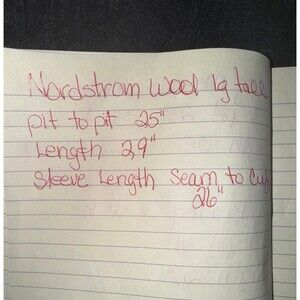 Nordstrom Wool lg tall
pit to pit 25"
Length 29"
Sleeve Length Seam to Cuff
26"